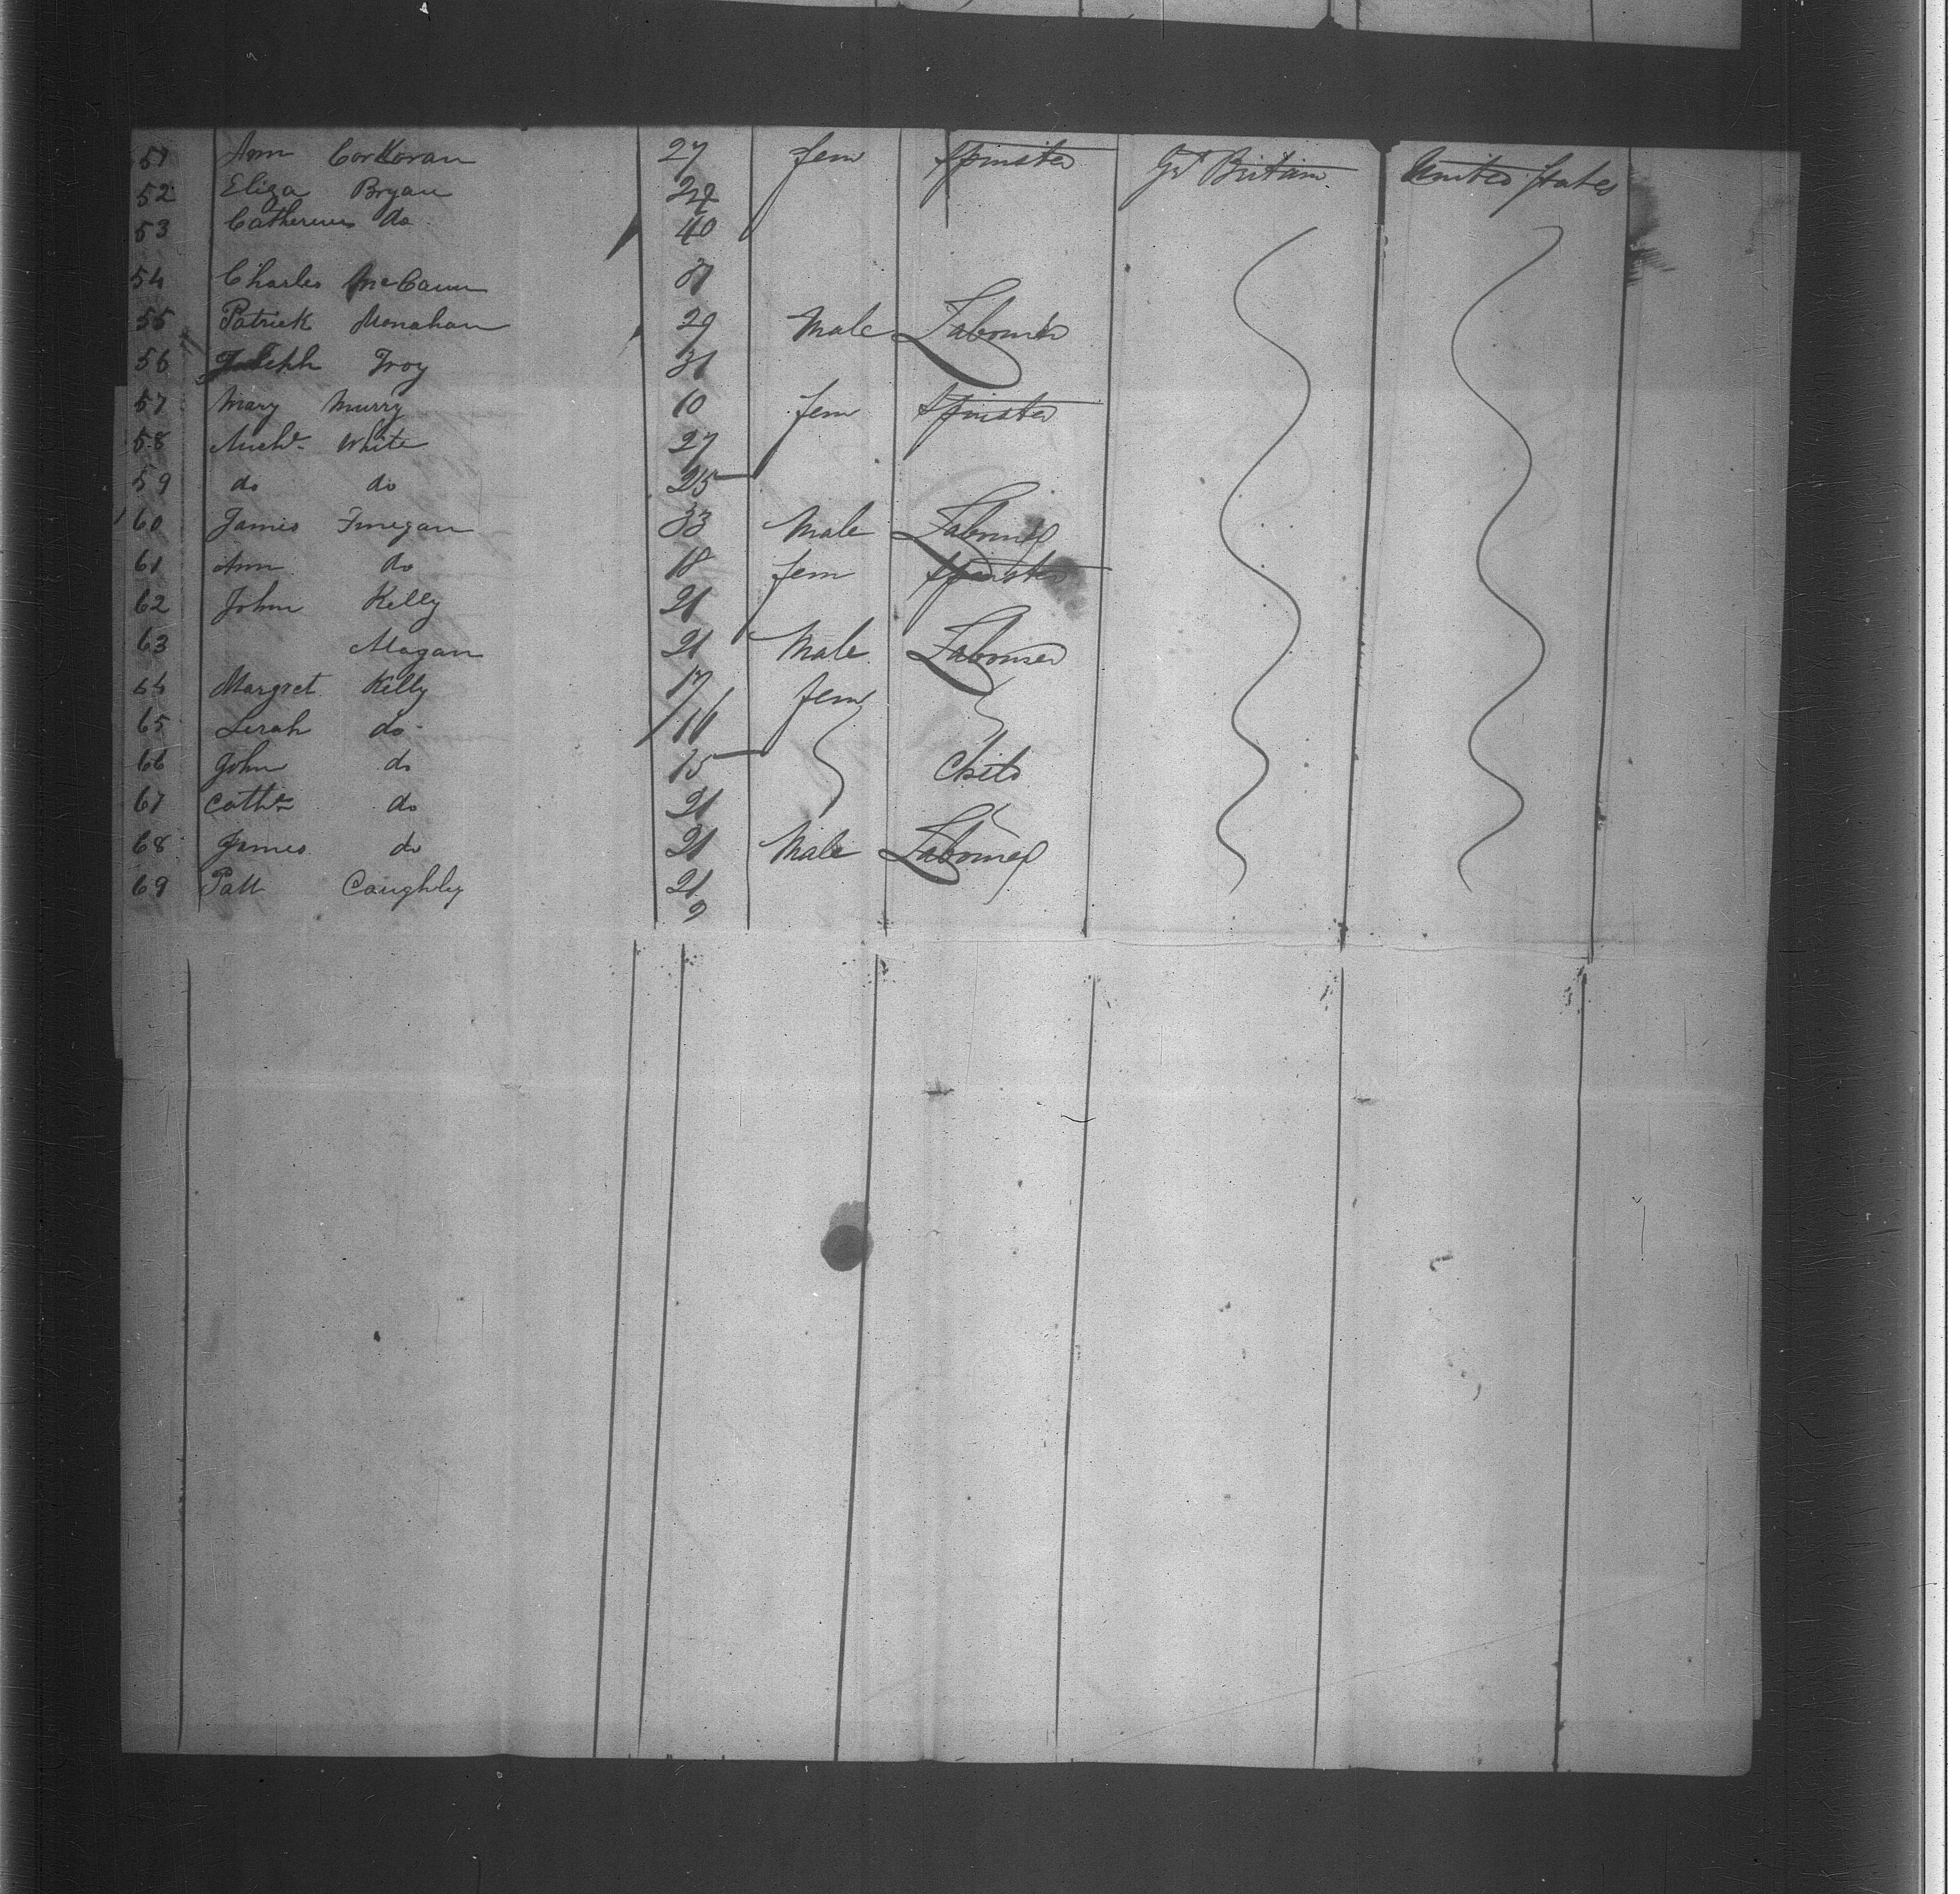 51 Ann Corkoran 27 fem Spinster Gt Britain United States
52 Eliza Bryan
53 Catherine do 40
54 Charles McCann 31
55 Patrick Monahan 29 Male Labourer
56 Joseph Troy 31
57 Mary Murry 10 fem Spinster
58 White 27
59 do do 25
60 James Finegan 33 Male Labourer
61 Ann do 18 fem Spinster
62 John Kelly 21
63 Magan 21 Male Labourer
64 Margret Kelly 17 fem
65 Serah do 16
66 John do 15 Child
67 Cathn do 21
68 James do 21 Male Labourer
69 Patt Caughly 21
2